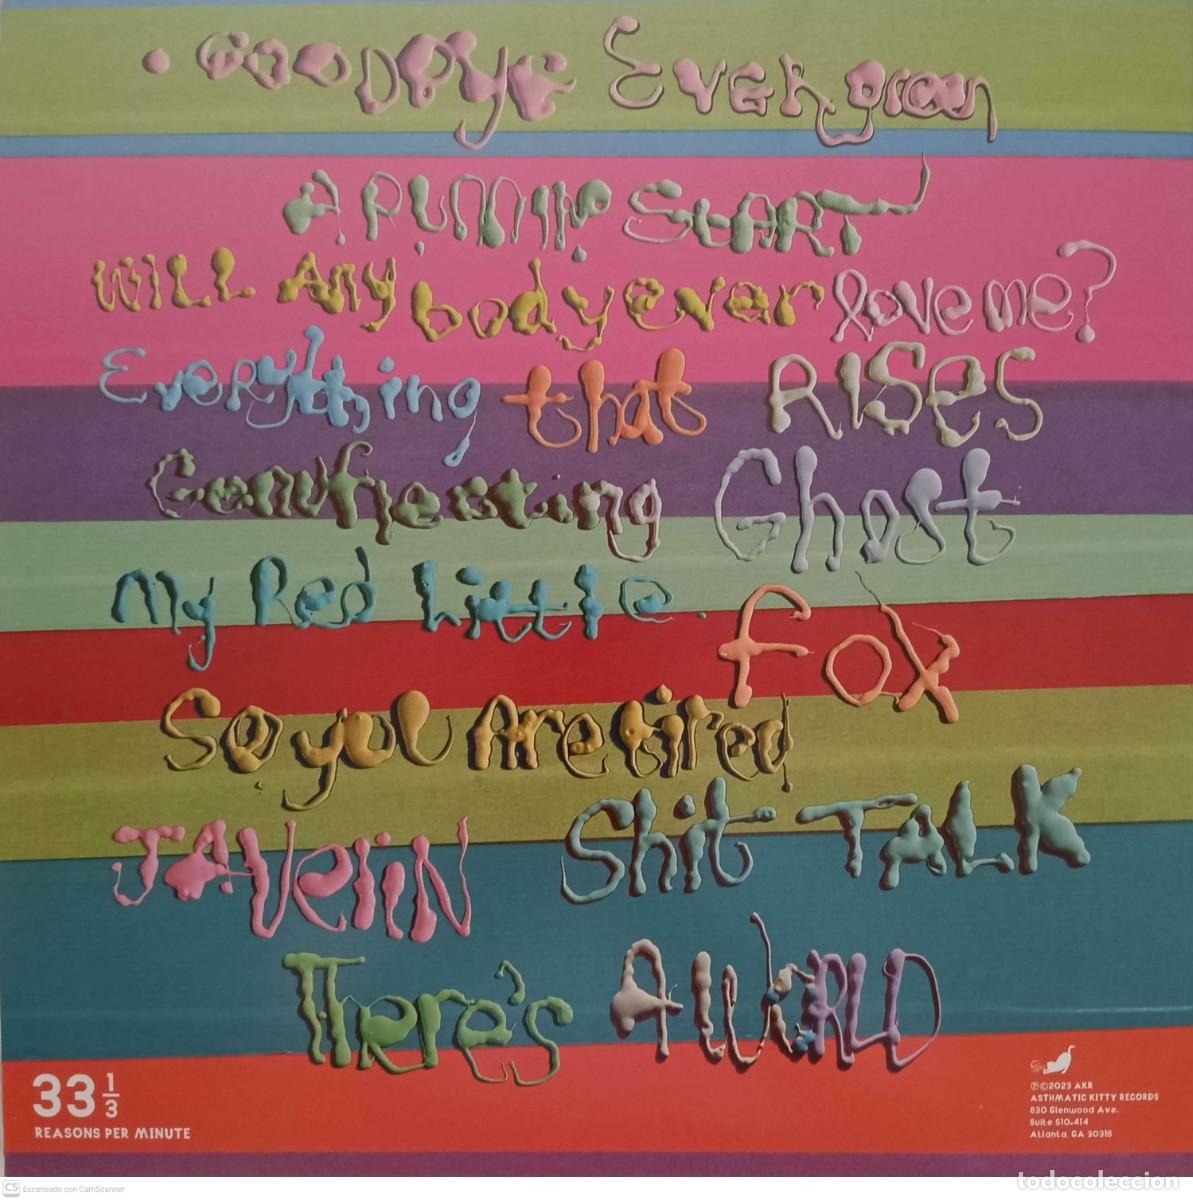 . GOODBYE EVERgreen
A RUNNIN START
WILL ANy body ever love me?
Everything that RISES
Genuflecting Ghost
My Red Little Fox
So you Are tired
JAVEliN Shit TALK
There's A WORLD
33 1/3
REASONS PER MINUTE
℗©2023 AKR
ASTHMATIC KITTY RECORDS
830 Glenwood Ave.
Suite 510-414
Atlanta, GA 30316
CS Escaneado con CamScanner
todocoleccion